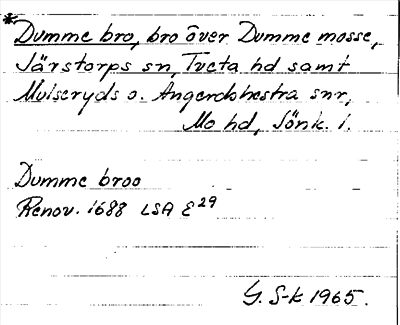 *Dumme bro, bro över Dumme mosse,
Järstorps sn, Tveta hd samt
Mulseryds o. Angerdshestra snr,
Mo hd, Jönk. l.
Dumme broo
Renov. 1688 LSA E29
G. S-k 1965.